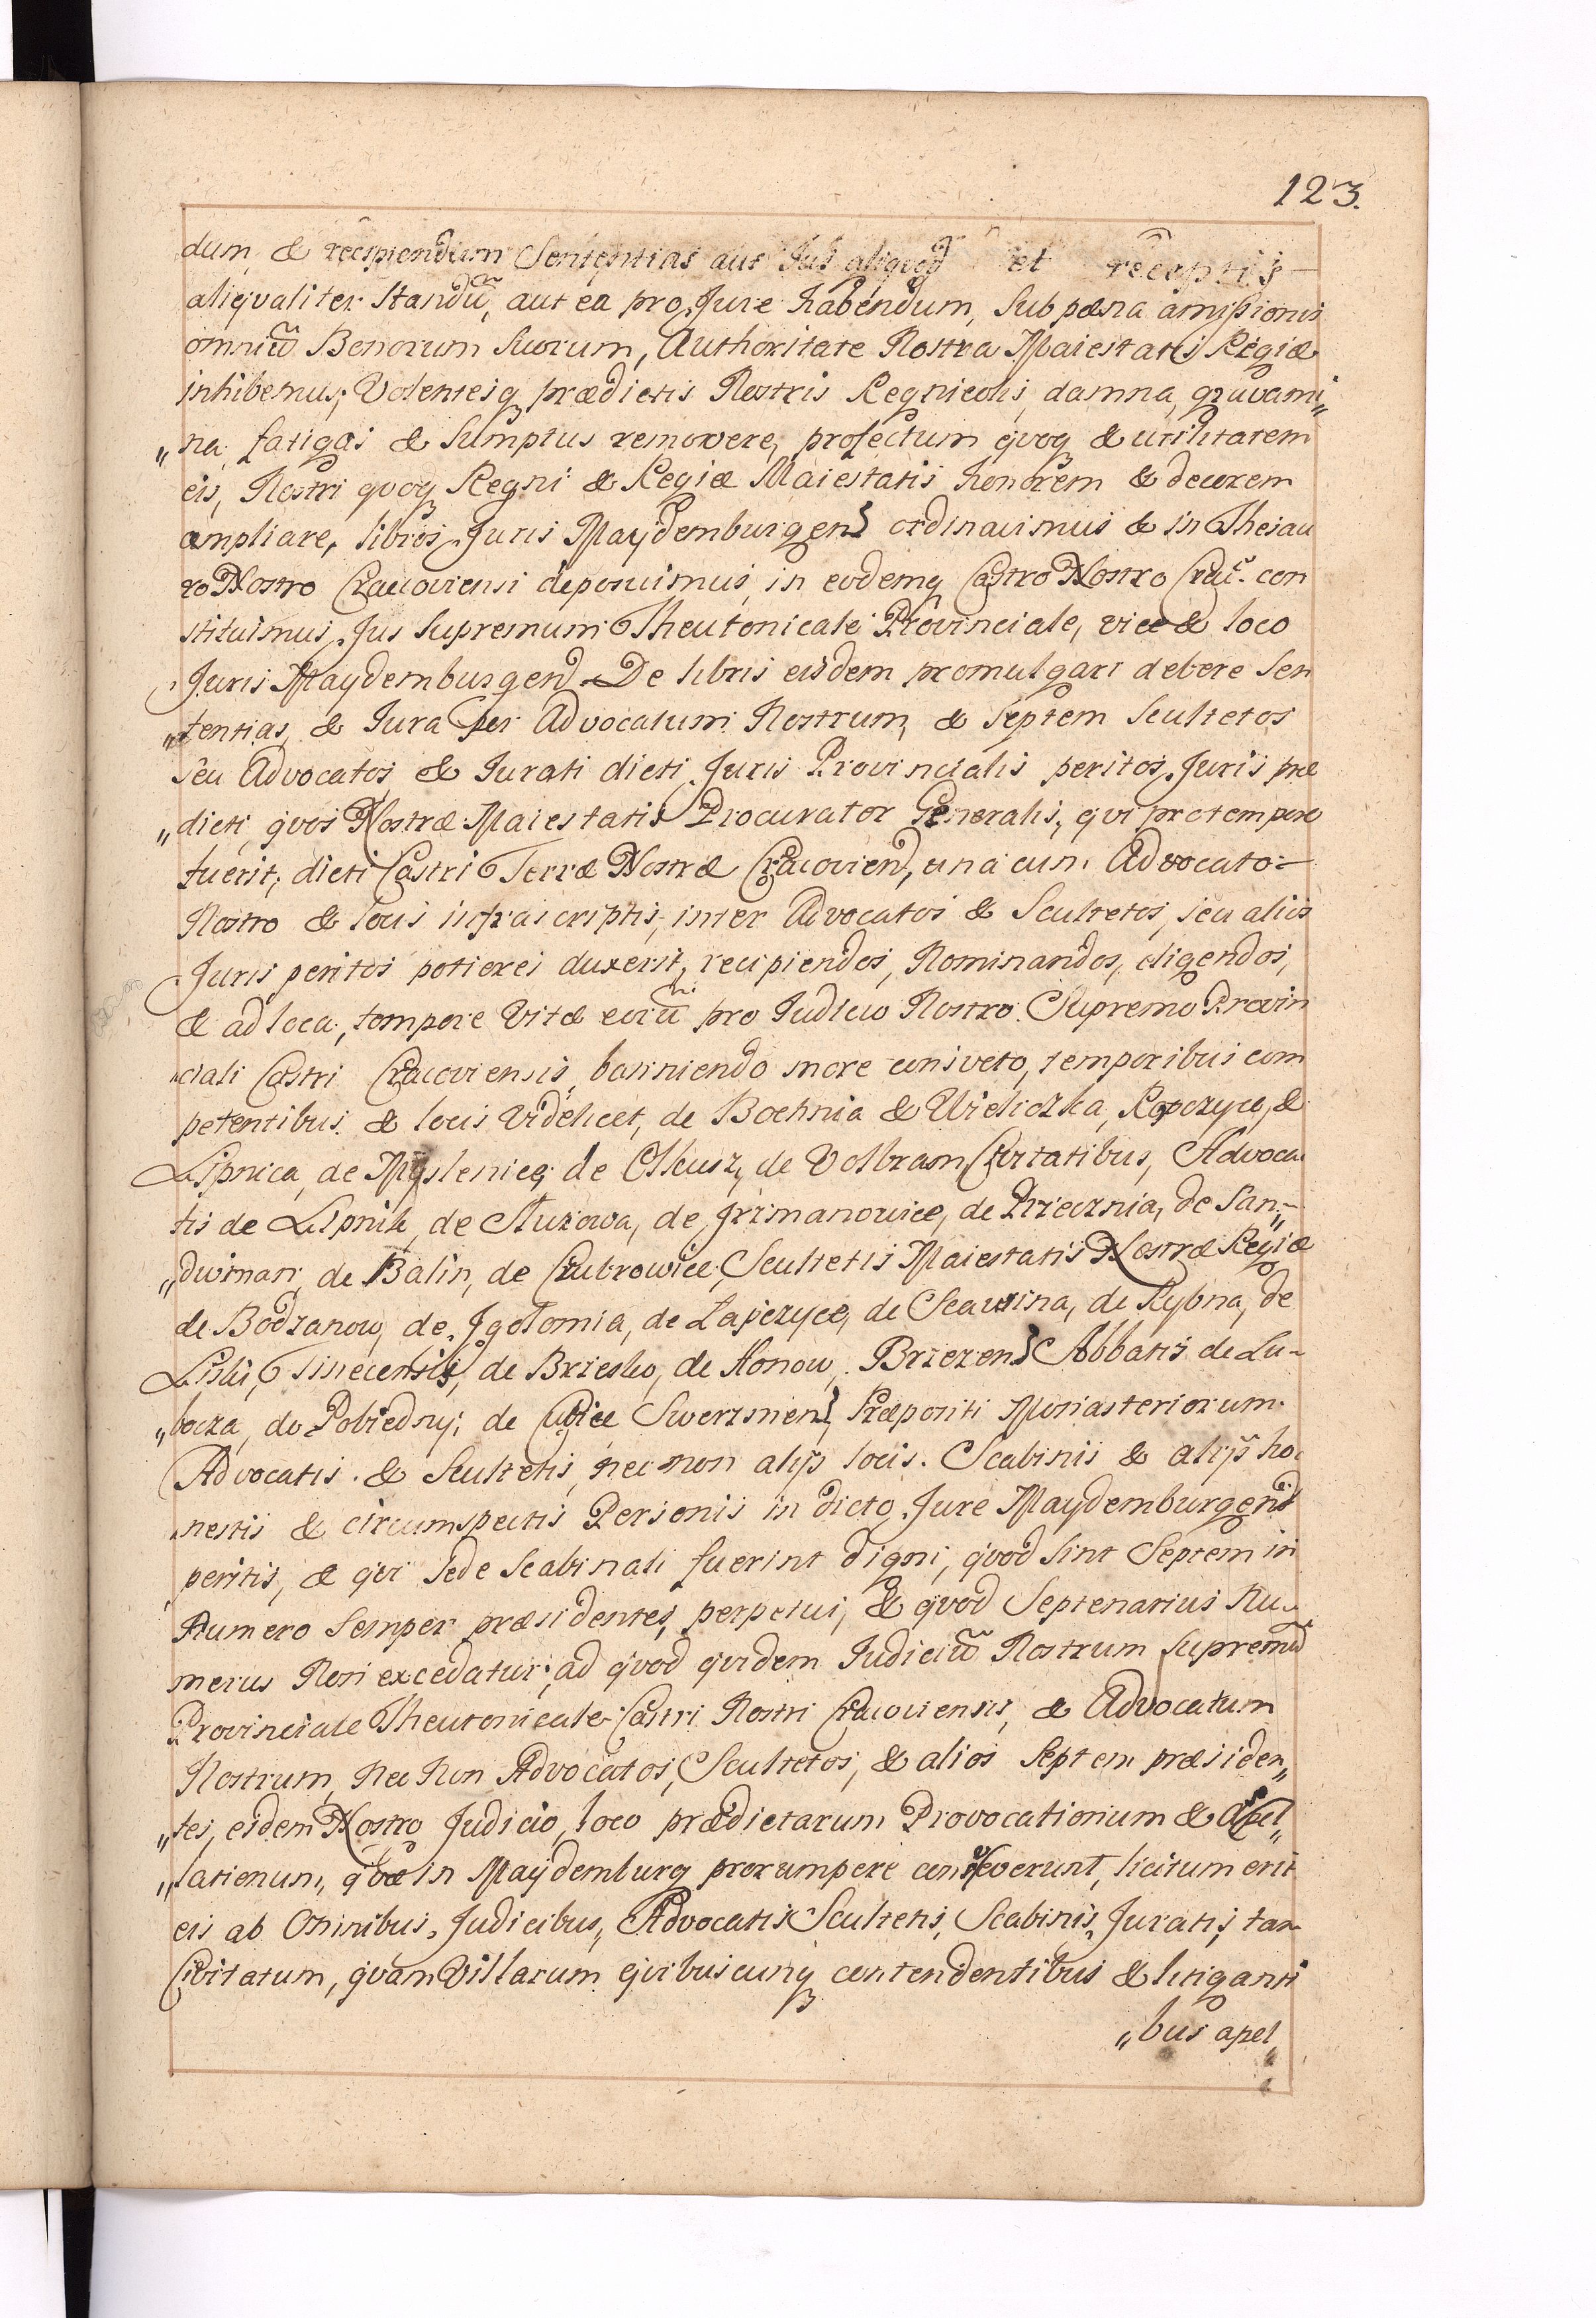 123.
dum, & recipiendum Sententias aut Jus aliquod et receptis
aliqvaliter Standũ, aut ea pro Jure habendum, Sub pæna amissionis
omniũ Bonorum Suorum, Authoritate Nostra Maiestatis Regiæ
inhibemus; Volentesq prædictis Nostris Regnicolis, damna, gravami„
„na, fatigas & Sumptus removere, profectum qvoq & utilitatem
eis, Nostri qvoq Regni & Regiæ Maiestatis honorem & decorem
ampliare, libros Juris Maydemburgens ordinavimus & in Thesau
ro Nostro Cracoviensi deposuimus, in eodemq Castro Nostro Crac. con
stituimus, Jus Supremum Theutonicale Provinciale, vice & loco
Juris Maydemburgens De libris eisdem promulgari debere Sen
„tentias, & Jura per Advocatum Nostrum, & Septem Scultetos
Seu Advocatos, & Jurati dicti Juris Provincialis peritos, Juris præ
„dicti, qvos Nostræ Maiestatis Procurator Generalis, qvi pro tempore
fuerit, dicti Castri Terræ Nostræ Cracoviens, una cum Advocato
Nostro & locis infrascriptis, inter Advocatos & Scultetos, seu alios
Juris peritos potiores duxerit, recipiendos, Nominandos, eligendos,
& ad loca, tempore Vitæ eorũ pro Judicio Nostro Supremo Provin
„ciali Castri Cracoviensis, banniendo more consveto, temporibus com
petentibus & locis Videlicet, de Bochnia & Wieliczka, Ropczyce, &
Lipnica, de Myslenice, de Olkusz, de Volbram Civitatibus, Advoca
tis de Lipnik, de Sturowa, de Jrzmanowice, de Przecznia, de San„
„dwinari, de Balin, de Czubrowice, Scultetis Maiestatis Nostræ Regiæ
de Bodzanow, de Jgołomia, de Łapczyce, de Scawina, de Rybna, de
Liski, Tinecensis, de Brzesko, de Konow, Brzezens Abbatis de Lu-
„bocza, de Pobiedny, de Cubice Swerznens, Præpositi Monasteriorum
Advocatis & Scultetis, nec non alijs locis. Scabinis & alijs ho
„nestis & circumspectis Personis in dicto Jure Maydemburgens
peritis, & qvi Sede Scabinali fuerint digni, qvod Sint Septem in
Numero Semper præsidentes, perpetui, & qvod Septenarius Nu„
merus Non excedatur; ad qvod qvidem Judiciũ Nostrum Supremũ
Provinciale Theutonicale Castri Nostri Cracoviensis, & Advocatum
Nostrum, Nec Non Advocatos, Scultetos, & alios Septem præsiden„
„tes, eidem Nostro Judicio, loco prædictarum Provocationum & Apel„
„lationum, qvæ in Maydemburg prorumpere consveverunt, licitum erit
eis ab Omnibus Judicibus, Advocatis Scultetis, Scabinis, Juratis, tam
Civitatum, qvam Villarum qvibuscunq contendentibus & litiganti
„bus apel„